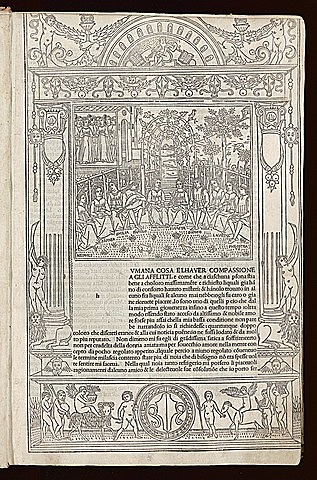 VMANA COSA E LHAVER COMPASSIONE
A GLI AFFLITTI. e come che a ciaschuna psona stia
bene a choloro massimamēte e richiesto liquali gia hā
no di conforto hauuto mistieri & hānolo trouato in al
cuni fra liquali se alcuno mai nebbe
ne riceuete piacere. Io sono uno di quelli p cio che dal
la mia prima giouenezza infino a questo tempo oltra
modo essendo stato acceso da altissimo & nobile amo
re forse piu assai chella mia bassa conditione non pare
be narrandolo io si richiedesse: quantunque doppo
coloro che discreti erano & alla cui noticia puēne ne fussi lodato & da mol
to piu reputato. Non dimeno mi fu egli di grādissima fatica a sofferire
non per crudelta della donna amata ma per souerchio amore nella mente con
cepto da pocho regolato appetito. ilquale percio a niuno
le termine mi lasciaua contento stare piu di noia che di bisogno nō mera spesse uol
te sentire mi faceua. Nella qual noia tanto rifrigerio mi porsero i piaceuoli
ragionamenti dalcuno amico & le
h